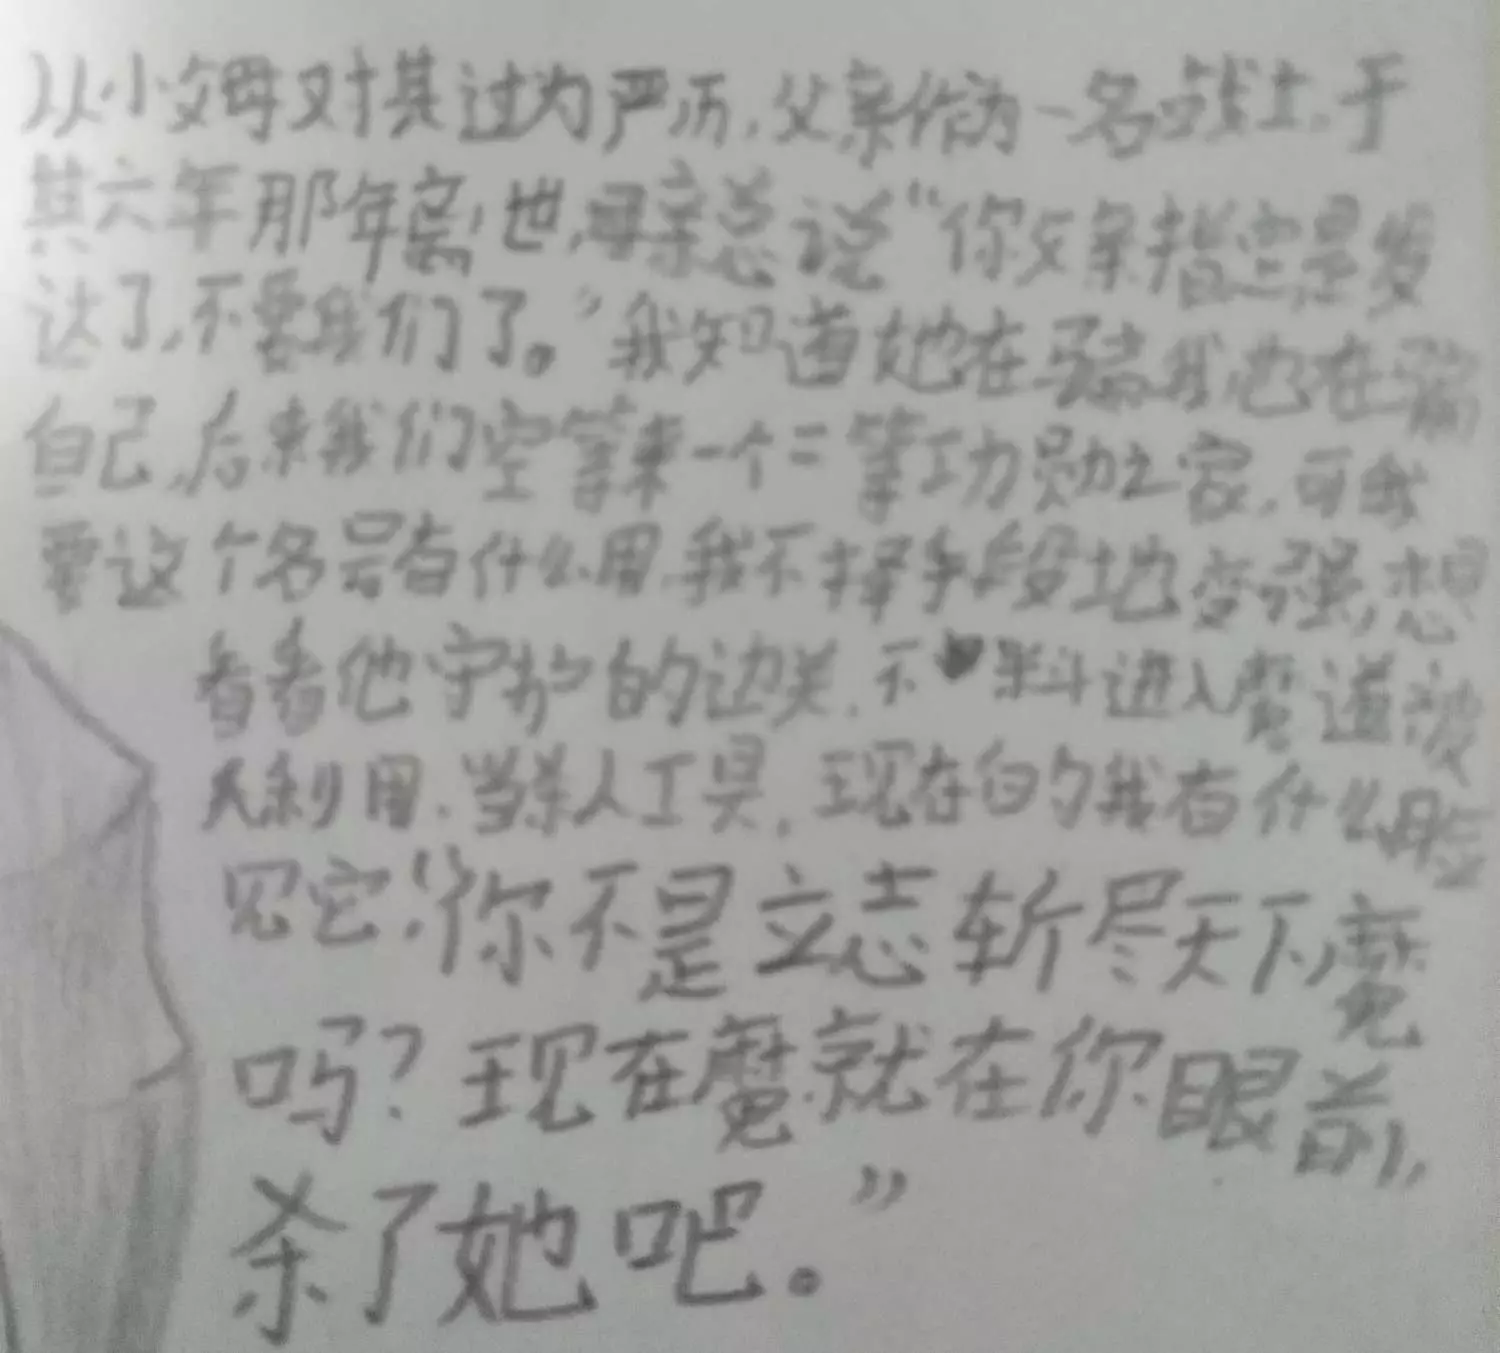 从小父母对其过为严历,父亲作为一名战士,于
其六年那年离世,母亲总说“你父亲指定是发
达了,不要我们了。”我知道她在骗我也在骗
自己,后来我们空等来一个二等功勋之家,可我
要这个名号有什么用,我不择手段地变强,想
看看他守护的边关,不料进入魔道被
人利用,当杀人工具,现在的我有什么脸
见它!“你不是立志斩尽天下魔
吗?现在魔就在你眼前,
杀了她吧。”